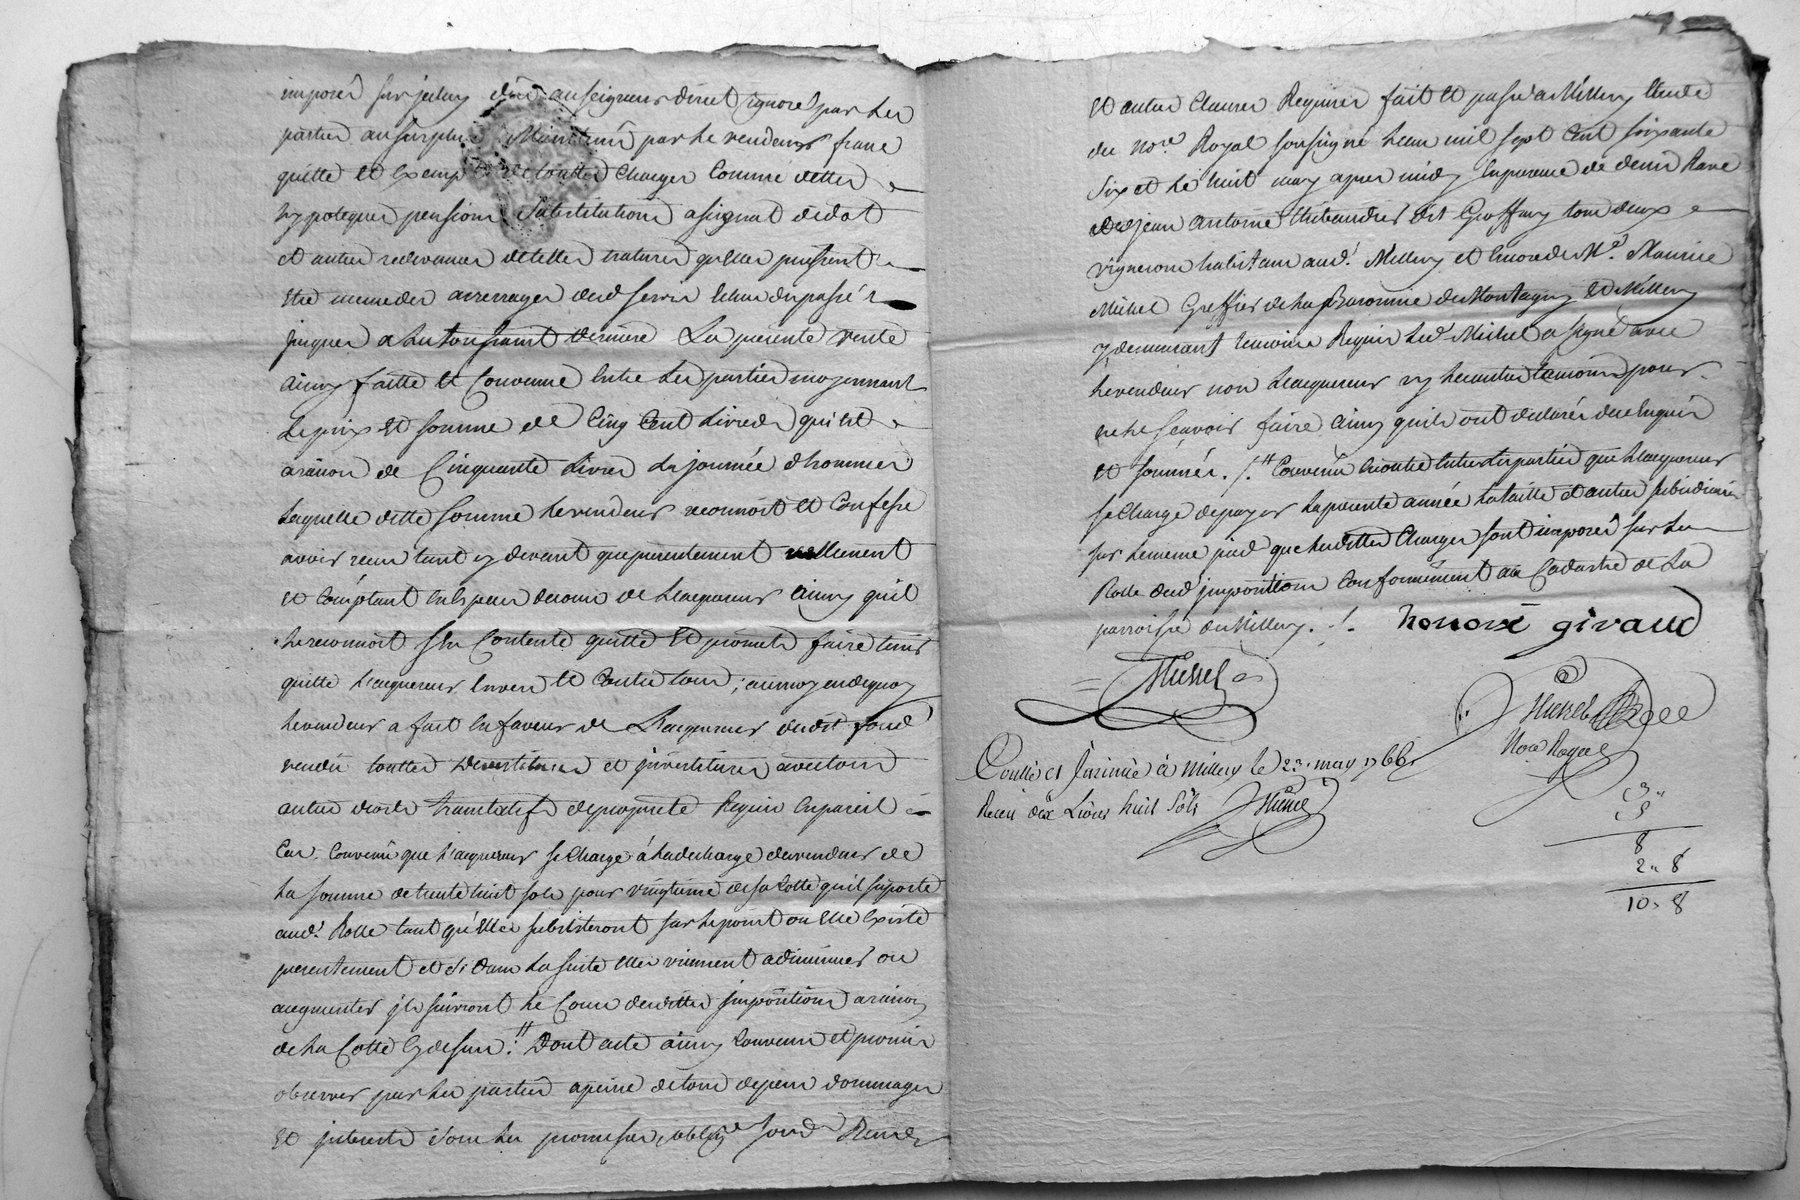 imposés sur jceluy dûe au seigneur direct ignoré par les
parties au surplus Maintenû par le vendeur franc
quitte et exempt de touttes Charges Comme dettes
hypoteques pensions Substitutions assignat de dot
et autres redevances de telles natures qu'elles puissent
Etre memedes arrerages desd servis Echus du passé
jusques a La toussaint derniere La presente vente
ainsy faitte et Convenue Entre Les parties moyennant
Le prix et somme de Cinq Cent Livres qui est
a raison de Cinquante Livres La journée d'hommes
Laquelle ditte somme Le vendeur reconnoit et Confesse
avoir reçeu tant cy devant que presentement reellement
et Comptant En Especes de cours de L'acquereur ainsy qu'il
Le reconnoit s'En Contente quitte et promet faire tenir
quitte L'acquereur Envers et Contre tous ; au moyen de quoy
Le vendeur a fait En faveur de L'acquereur dudit fond
vendû touttes Devestitures et jnvestitures avec tous
autres droits translatifs de proprieté Requis En pareil
Cas. Convenû que L'acquereur se Charge à La decharge du vendeur de
La somme de trente huit sols pour vingtieme de sa Cotte qu'il suporte
aud.t Rolle tant qu'Elles subsisteront sur Le point ou Elle Existe
presentement et si dans La suite Elles viennent a diminuer ou
augmenter jls suivront Le Cours desdittes jmpositions a raison
de La Cotte Cy dessus. Dont acte ainsy Convenu et promis
observer par Les parties a peine de tous depens dommages
et jnterests sous Les promesses, oblig.ns soum.ns Renon.ns
et autres Clauses Requises fait et passé a Millery Etude
du No.re Royal soussigné L'an mil sept Cent soixante
six et Le huit may apres midy En presence de Denis Rave
et de jean antoine thibaudier dit Geoffray tous deux
vignerons habitans aud.t Millery et Encore de M.e Maurice
Michel Greffier de La Baronnie de Montagny et Millery
y demeurant temoins Requis Led. Michel a signé avec
Le vendeur non L'acquereur ny Les autres temoins pour
ne Le sçavoir faire ainsy qu'ils ont declaré de ce Enquis
et sommés. /. Convenû En outre Entre Les parties que L'acquereur
se Charge de payer La presente année La taille et autres subsidiaires
sur Le meme pied que Lesdittes Charges sont imposés sur Les
Rolle desd jmpositions Conformément au Cadastre de La
parroisse de Millery. /. honoré giraud
Michel
Michel
No.re Royal
Conllé et Insinué à Millery le 23. may 1766
Receu dix Livres huit Sols Michel
8
2 " 8
10 " 8